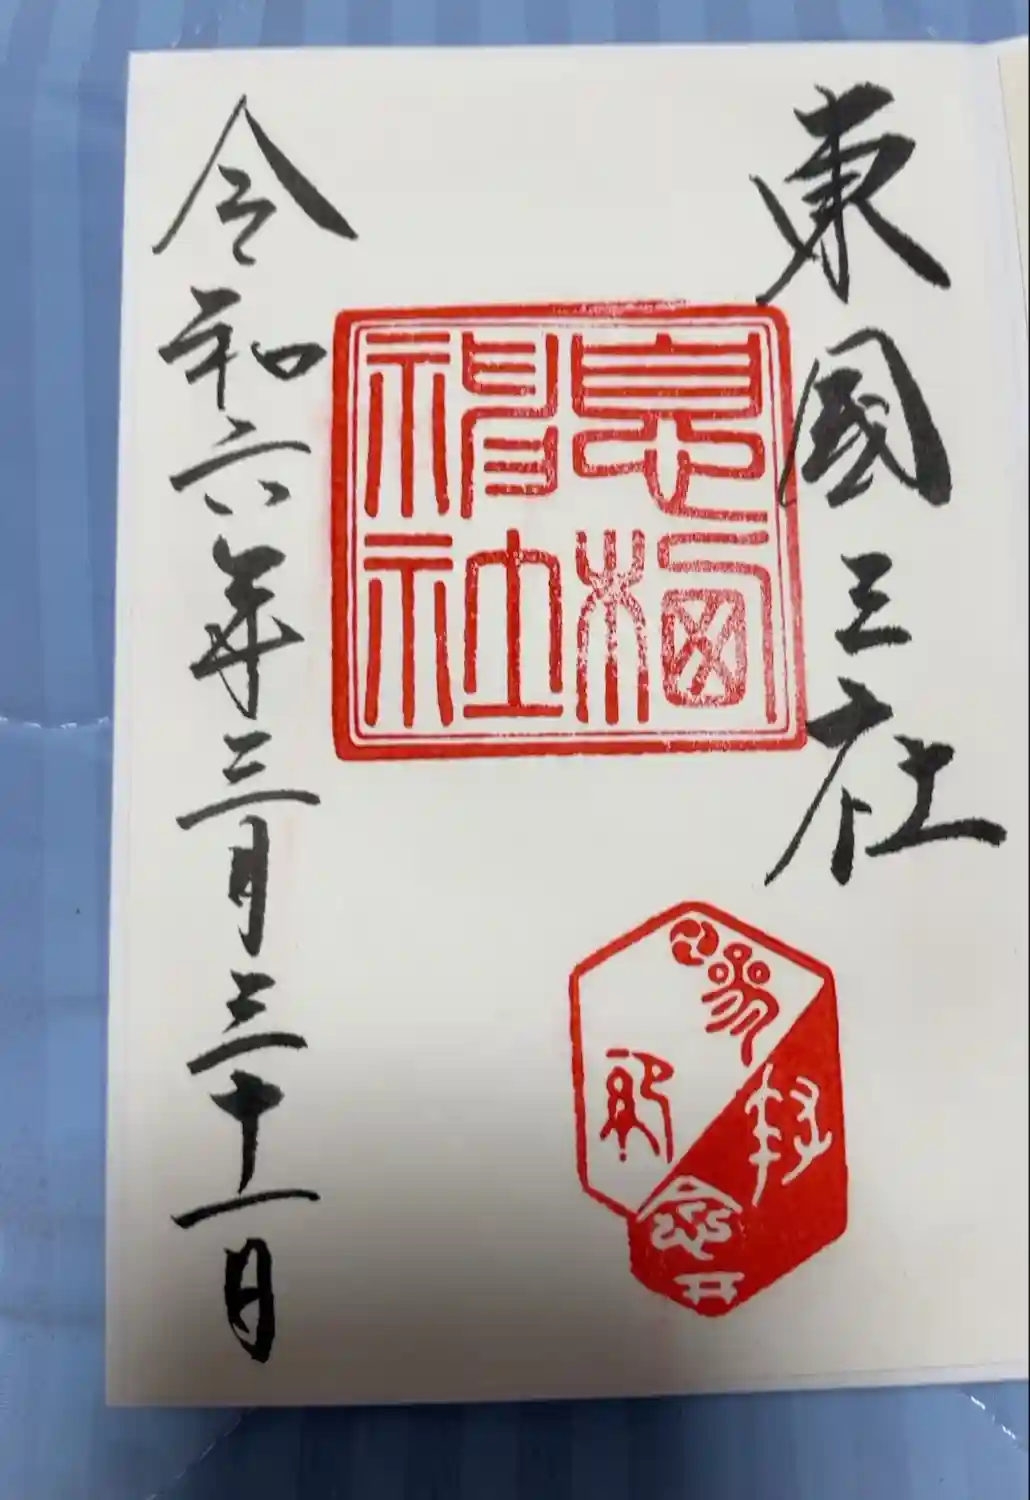 東國三社
息栖
神社
令和六年三月三十一日